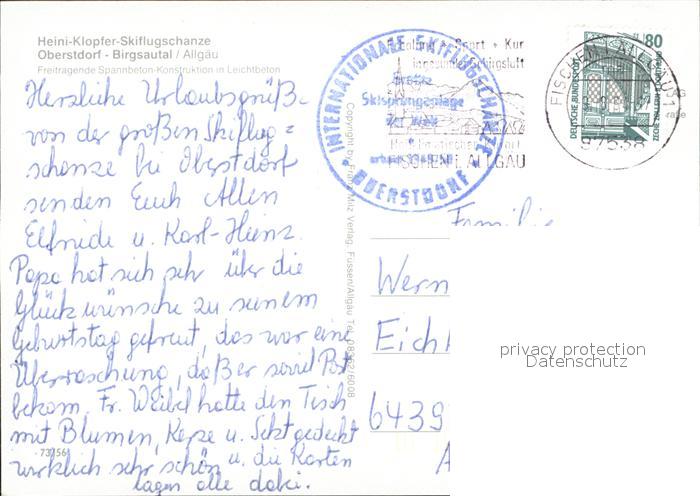 Heini-Klopfer-Skiflugschanze
Oberstdorf - Birgsautal / Allgäu
Freitragende Spannbeton-Konstruktion in Leichtbeton
Herzliche Urlaubsgrüße
von der großen Skiflug=
schanze bei Oberstdorf
senden Euch Allen
Elfriede u. Karl-Heinz.
Papa hat sich sehr über die
Glückwünsche zu seinem
Geburtstag gefreut, das war eine
Überraschung, daß er soviel Post
bekam. Fr. Weibel hatte den Tisch
mit Blumen, Kerze u. Sekt gedeckt
wirklich sehr schön u. die Karten
lagen alle dabei.
73/56
INTERNATIONALE SKIFLUGSCHANZE
Größte
Skisprunganlage
der Welt
OBERSTDORF
+ Sport + Kur
FISCHEN I. ALLGÄU
FISCHEN I. ALLGÄU 1
87538
80
DEUTSCHE BUNDESPOST
ZECHE ZOLLERN II DORTMUND
Familie
Wern
Eich
6439
privacy protection
Datenschutz